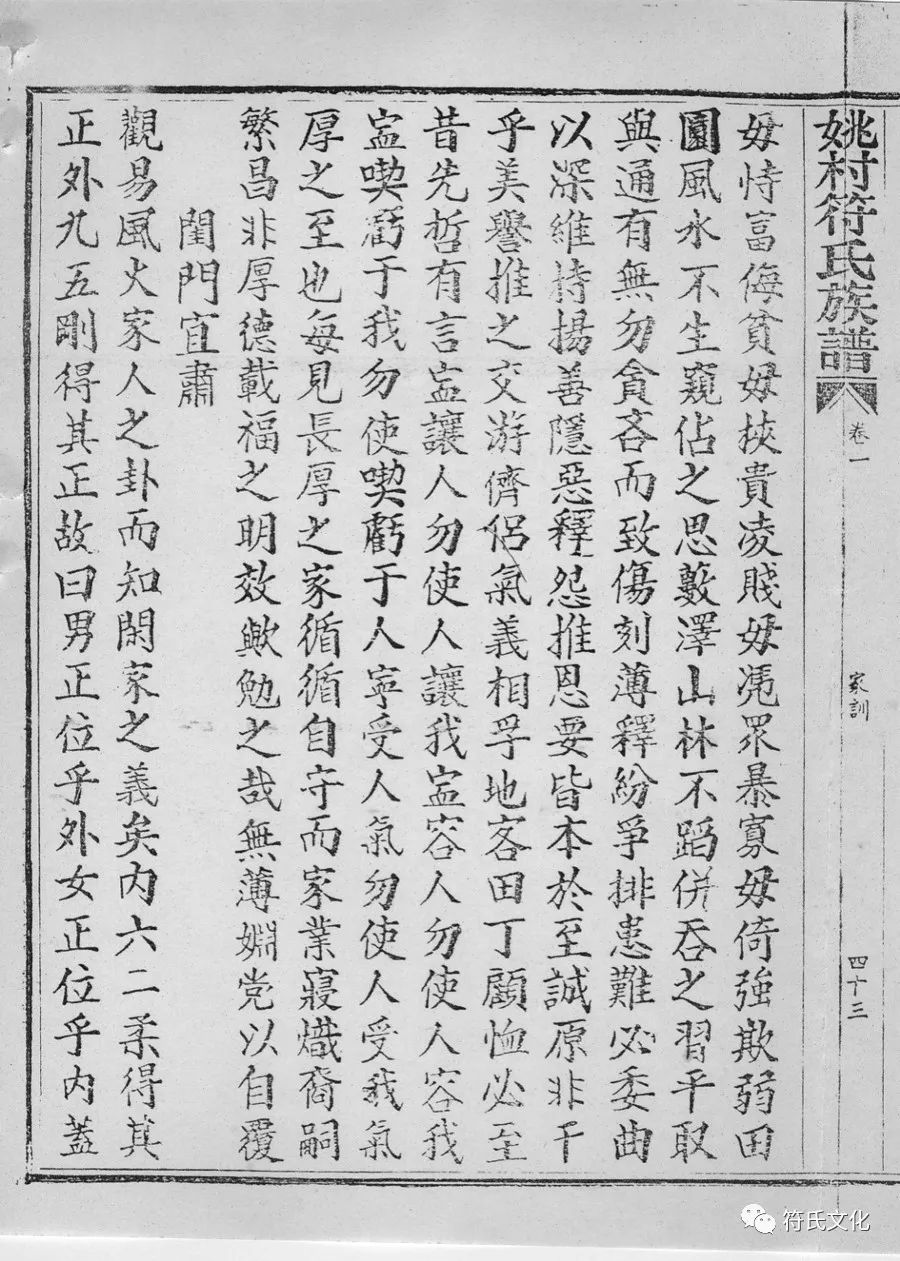 姚村符氏族譜
卷一
家訓
四十三
毋恃富侮貧毋挾貴凌賤毋凴眾暴寡毋倚強欺弱田
園風水不生窺佔之思藪澤山林不蹈併吞之習平取
與通有無勿貪吝而致傷刻薄釋紛爭排患難必委曲
以深維持揚善隱惡釋怨推恩要皆本於至誠原非干
乎美譽推之交游儕侶氣義相孚地客田丁顧恤必至
昔先哲有言寍讓人勿使人讓我寍容人勿使人容我
寍喫虧于我勿使喫虧于人寕受人氣勿使人受我氣
厚之至也每見長厚之家循循自守而家業寢熾裔嗣
繁昌非厚德載福之明效歟勉之哉無薄姻党以自覆
閨門宜肅
觀易風火家人之卦而知閑家之義矣内六二柔得其
正外九五剛得其正故曰男正位乎外女正位乎内蓋
符氏文化